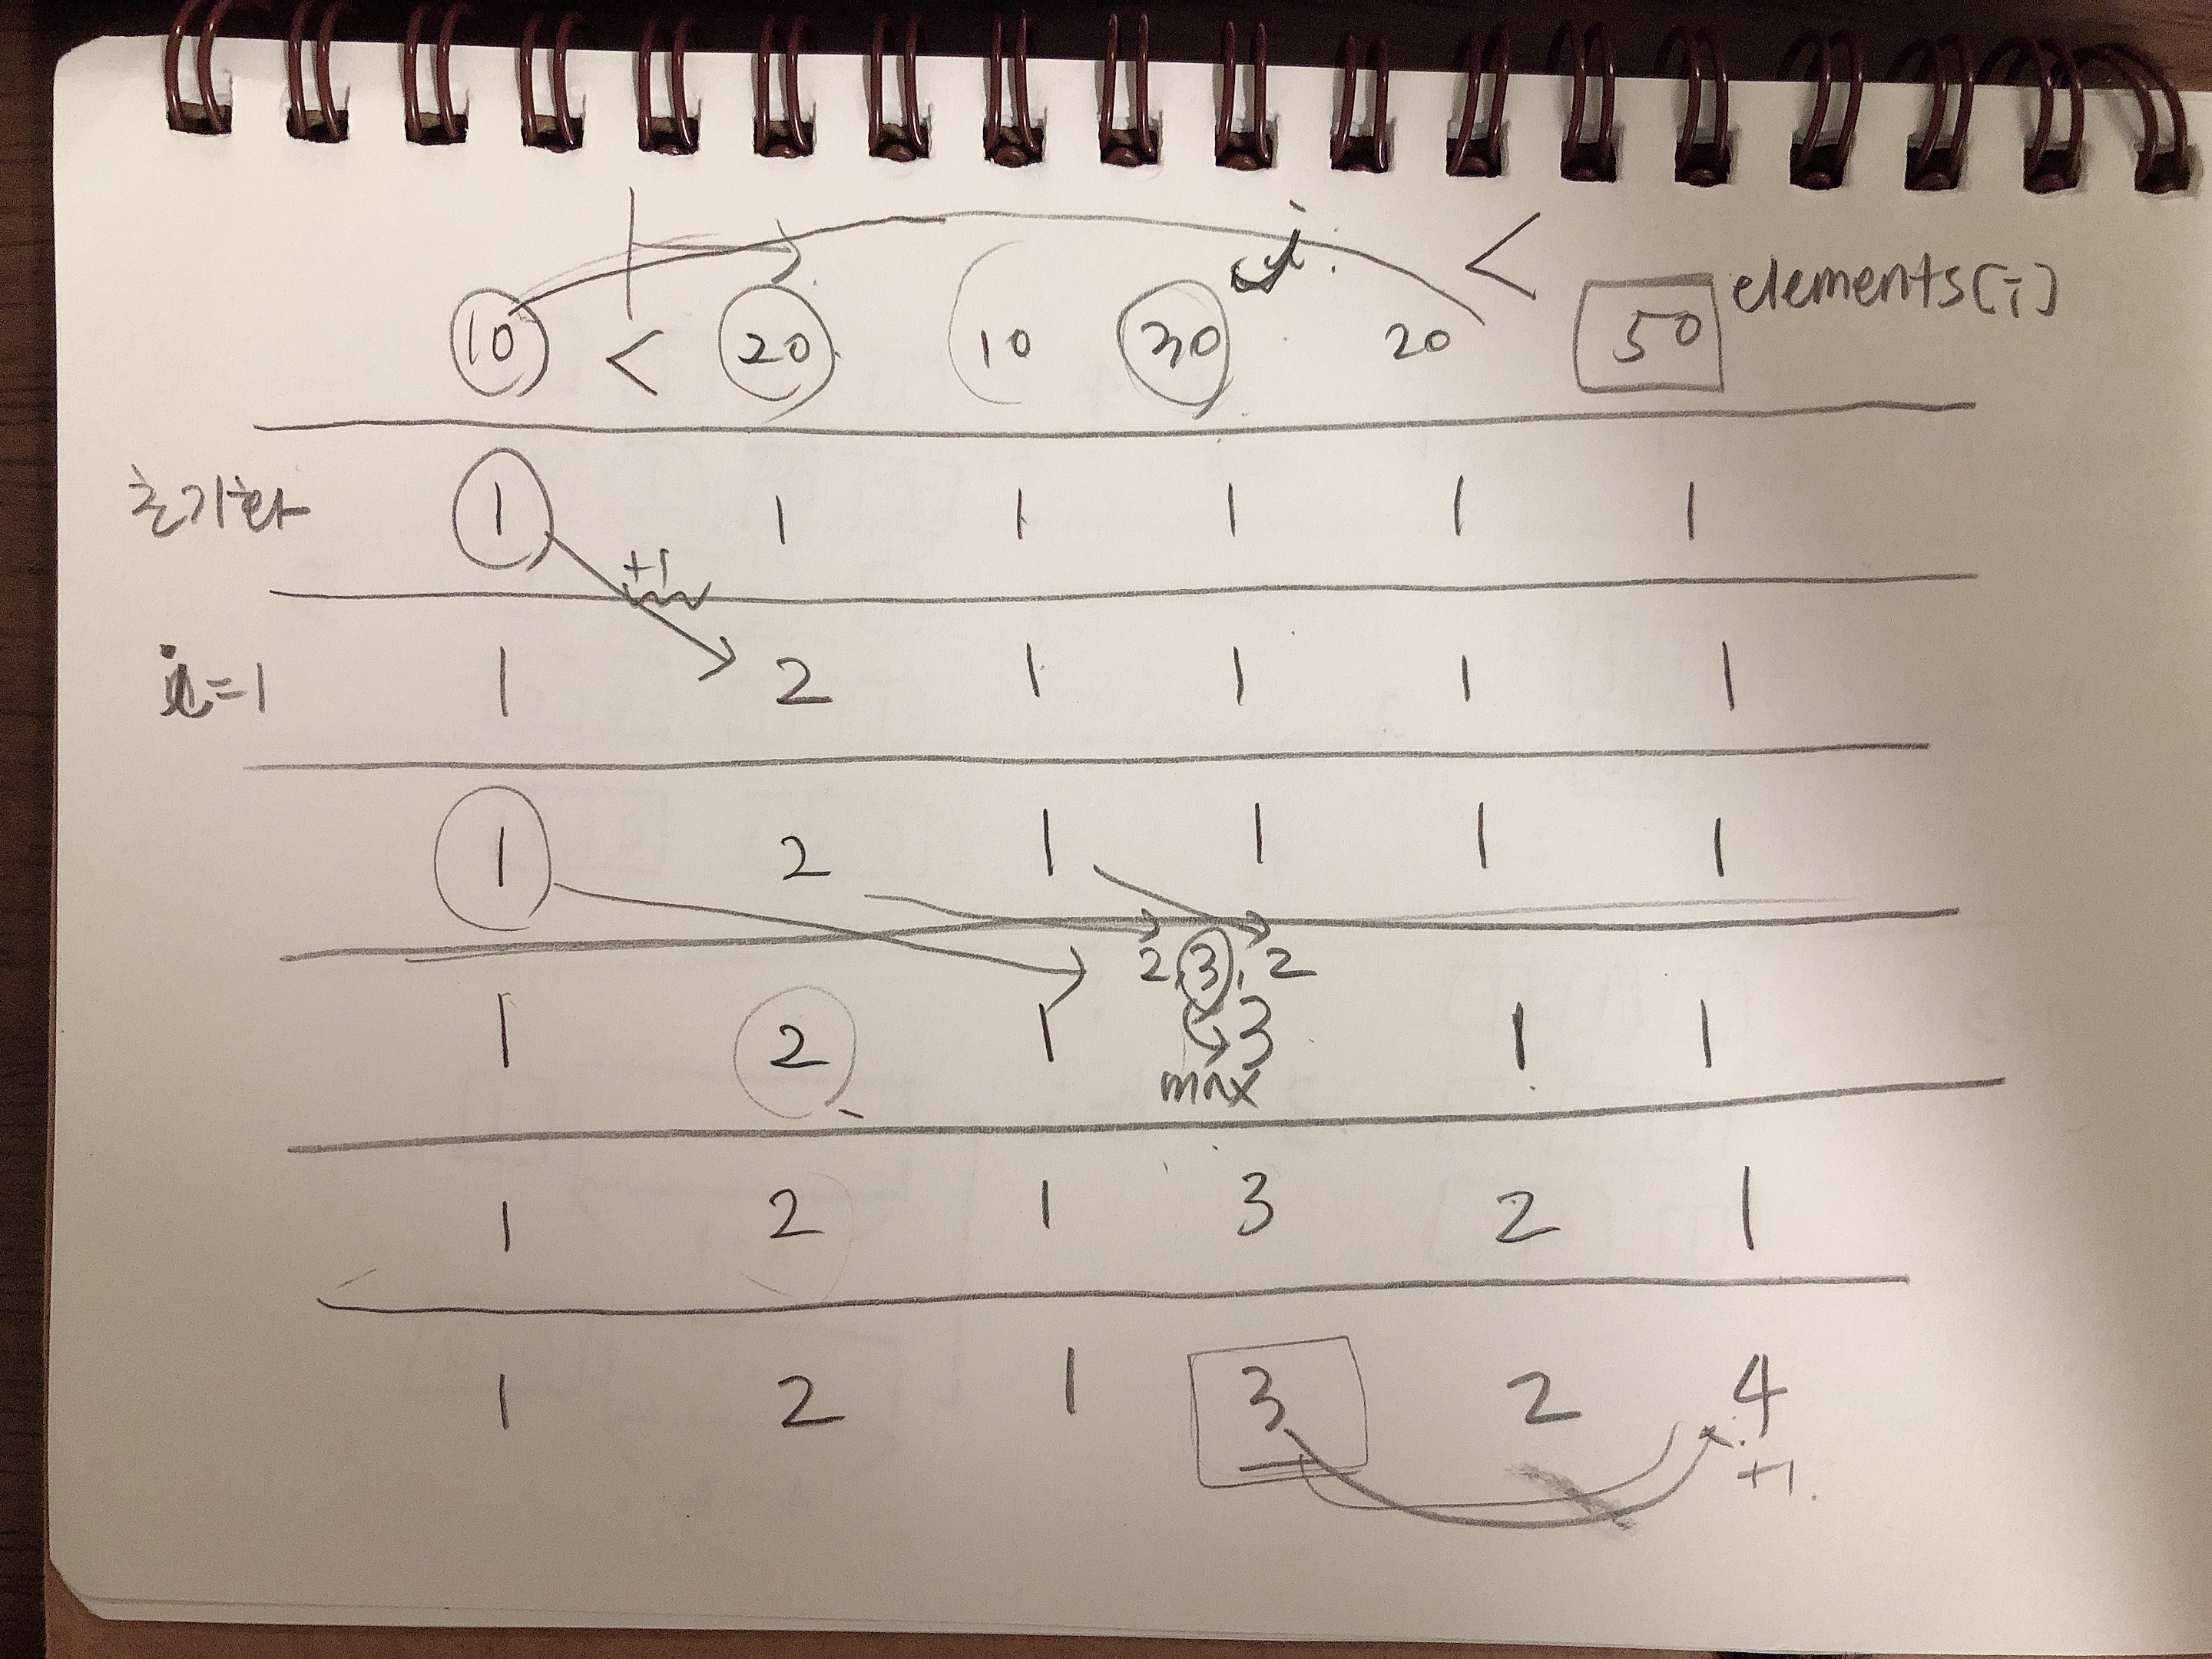 j
10 < 20 10 30 20 < 50 elements[i]
초기화 1 1 1 1 1 1
+1
i=1 1 2 1 1 1 1
1 2 1 1 1 1
2, 3, 2
1 2 1 3 1 1
max
1 2 1 3 2 1
1 2 1 3 2 4
+1